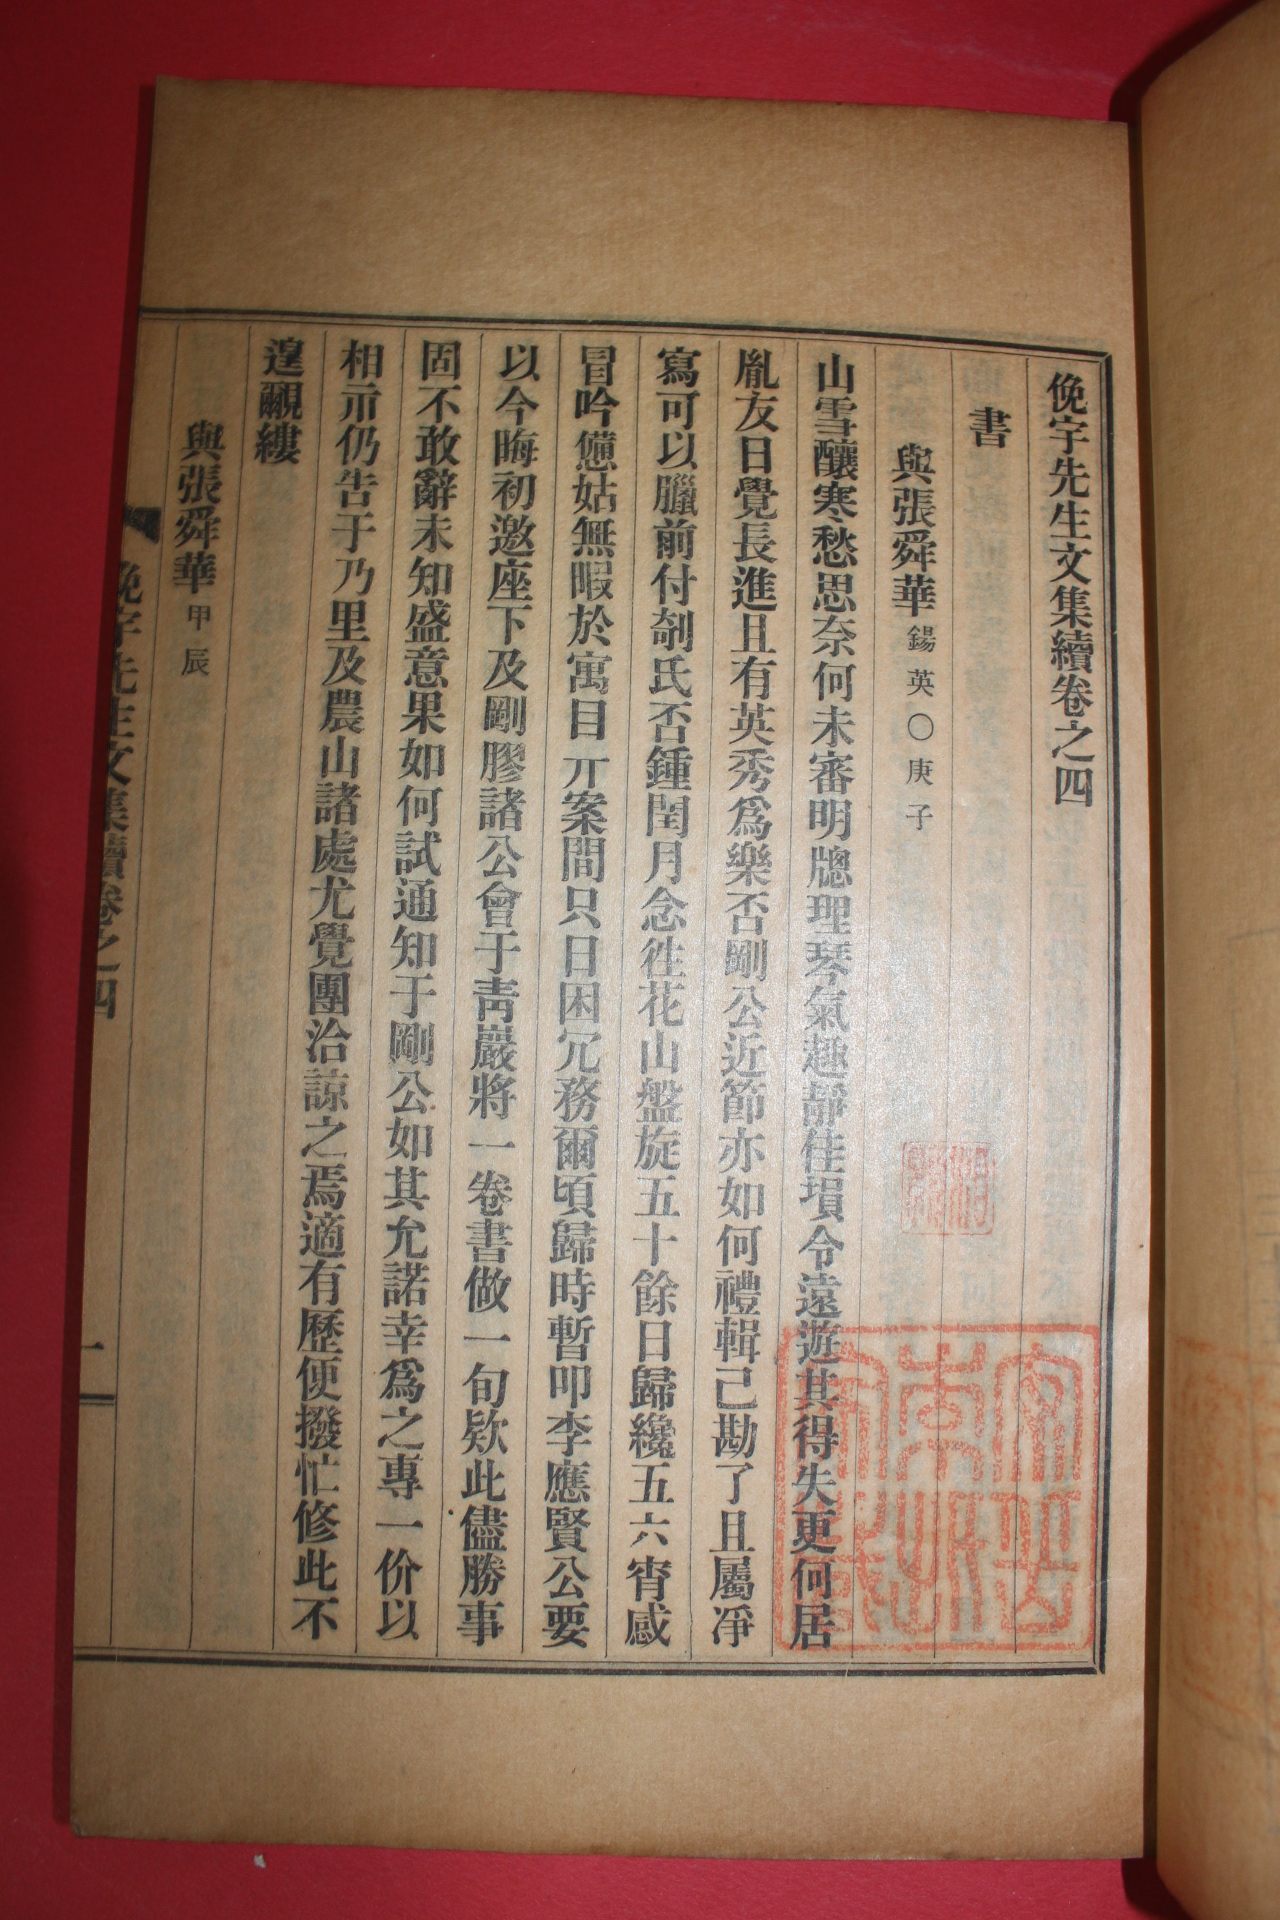 俛宇先生文集續卷之四
書
與張舜華 鍚英○庚子
山雪釀寒愁思奈何未審明牕理琴氣趣靜佳塤令遠遊其得失更何居
胤友日覺長進且有英秀爲樂否剛公近節亦如何禮輯己勘了且屬淨
寫可以臘前付剞氏否鍾閏月念徃花山盤旋五十餘日歸纔五六宵感
冒吟憊姑無暇於寓目丌案間只日困冗務爾頃歸時暫叩李應賢公要
以今晦初邀座下及剛膠諸公會于靑巖將一卷書做一句欵此儘勝事
固不敢辭未知盛意果如何試通知于剛公如其允諾幸爲之專一价以
相示仍告于乃里及農山諸處尤覺團洽諒之焉適有歷便撥忙修此不
遑覼縷
與張舜華 甲辰
俛宇先生文集續卷之四
一